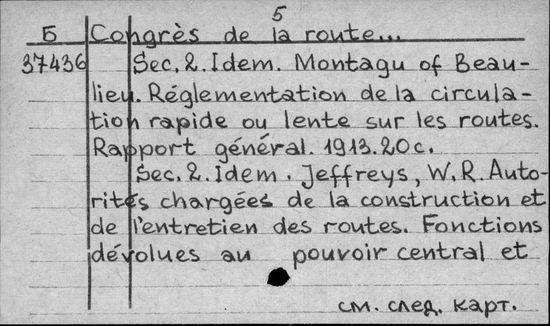 5
Б Congrès de la route...
37436 Sec. 2. Idem. Montagu of Beau-
lieu. Réglementation de la circula-
tion rapide ou lente sur les routes.
Rapport général. 1913. 20 c.
Sec. 2. Idem. Jeffreys, W. R. Auto-
rités chargées de la construction et
de l'entretien des routes. Fonctions
dévolues au pouvoir central et
см. след. карт.